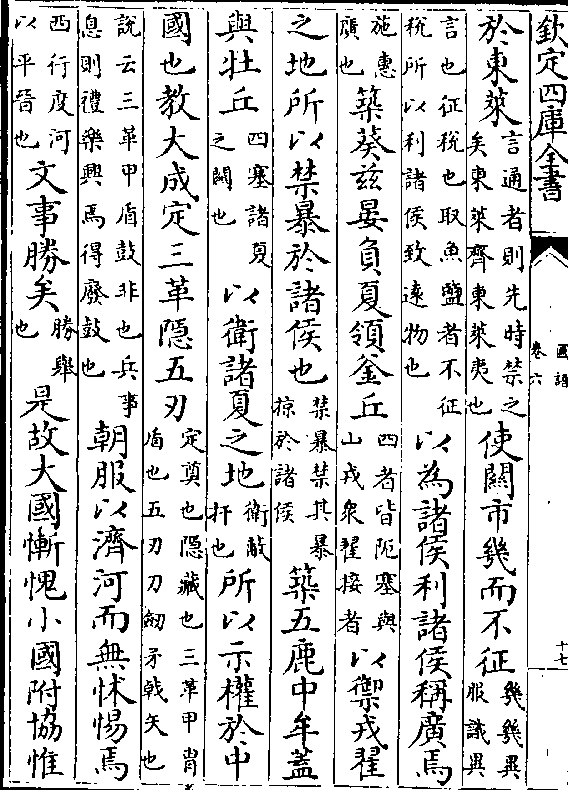 欽定四庫全書
國語
卷六
十七
於東萊言通者則先時禁之矣東萊齊東萊夷也使關市幾而不征幾幾異服識異
言也征稅也取魚鹽者不征稅所以利諸侯致遠物也以為諸侯利諸侯稱廣焉
施惠廣也築葵兹晏負夏領釜丘四者皆阨塞與山戎衆翟接者以禦戎翟
之地所以禁暴於諸侯也禁暴禁其暴掠於諸侯築五鹿中牟蓋
與牡丘四塞諸夏之關也以衛諸夏之地衛蔽扞也所以示權於中
國也教大成定三革隱五刃定奠也隱藏也三革甲冑盾也五刃刀劒矛戟矢也
說云三革甲盾鼓非也兵事息則禮樂興焉得廢鼓也朝服以濟河而無怵惕焉
西行度河以平晉也文事勝矣勝舉也是故大國慚愧小國附協惟